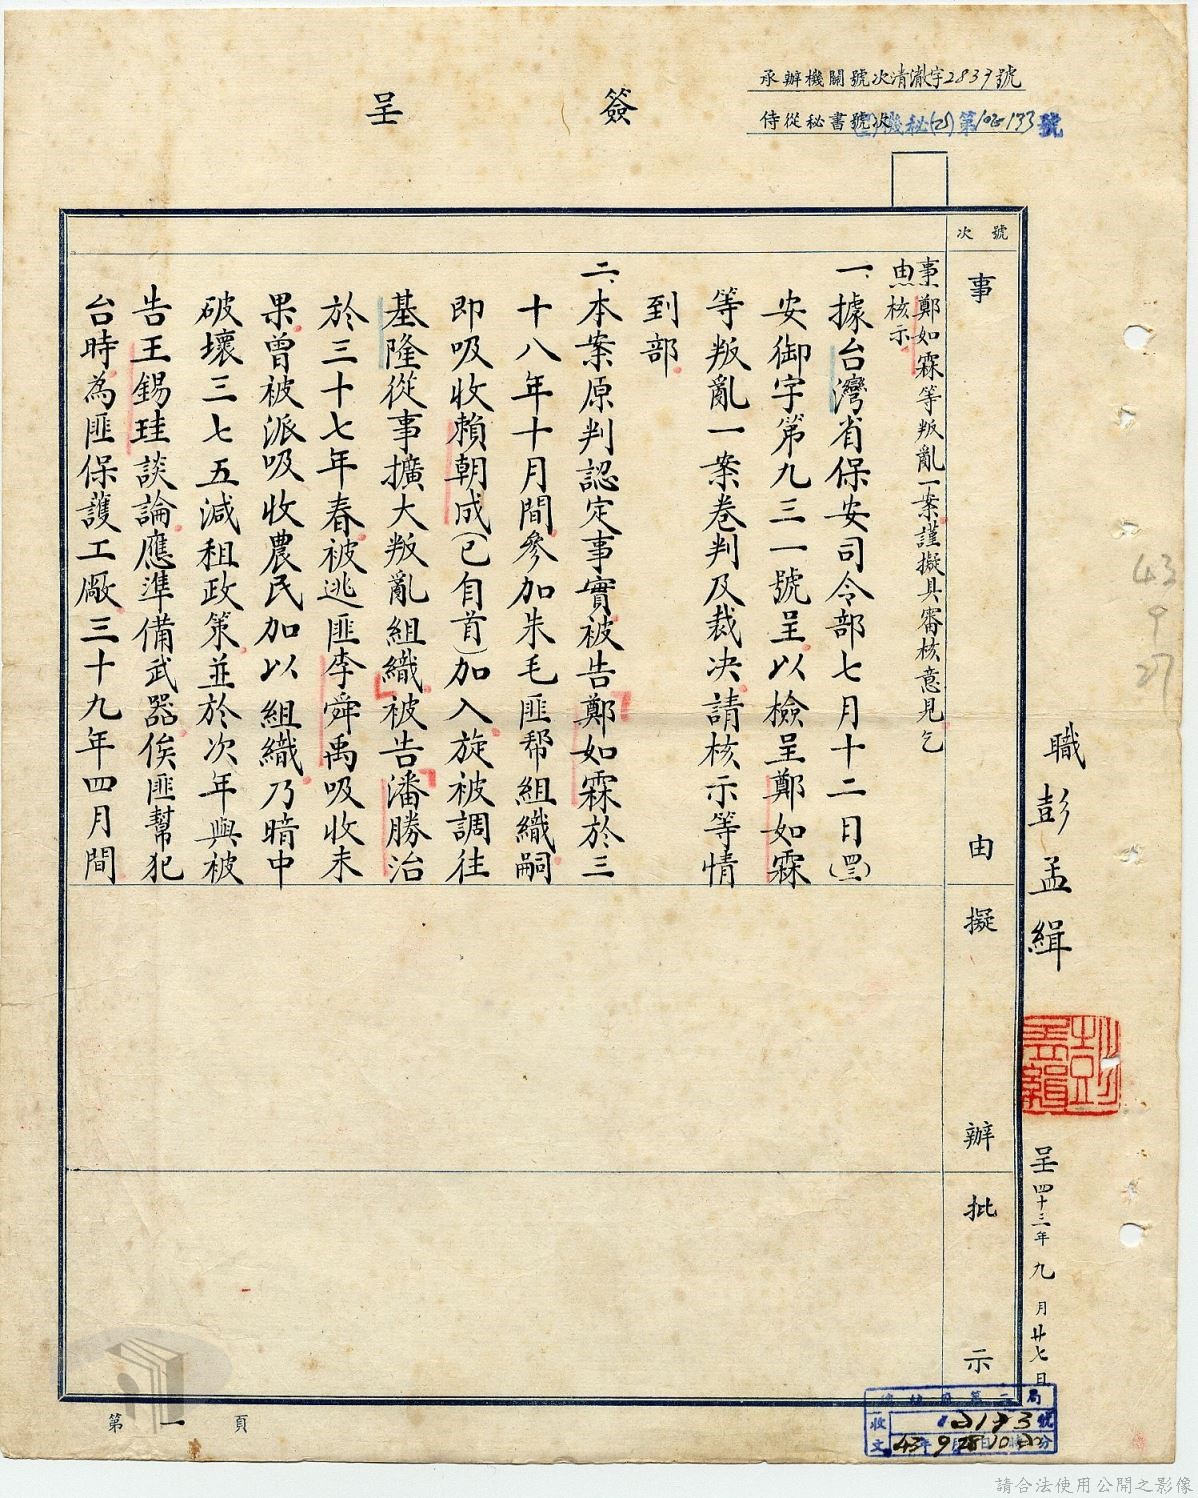 簽呈
承辦機關號次清澈字2837號
侍從秘書號次機秘(乙)第102-133號
號次
事由
擬辦
批示
事由鄭如霖等叛亂一案謹擬具審核意見乞
核示
一、據台灣省保安司令部七月十二日(四三)
安御字第九三一號呈以檢呈鄭如霖
等叛亂一案卷判及裁決請核示等情
到部
二、本案原判認定事實被告鄭如霖於三
十八年十月間參加朱毛匪幫組織嗣
即吸收賴朝成(已自首)加入旋被調往
基隆從事擴大叛亂組織被告潘勝治
於三十七年春被逃匪李舜禹吸收未
果曾被派吸收農民加以組織乃暗中
破壞三七五減租政策並於次年與被
告王錫珪談論應準備武器俟匪幫犯
台時為匪保護工廠三十九年四月間
職彭孟緝
彭孟緝
呈四十三年九月廿七日
43
9
27
第一頁
收文
43年9月28日10時分
請合法使用公開之影像